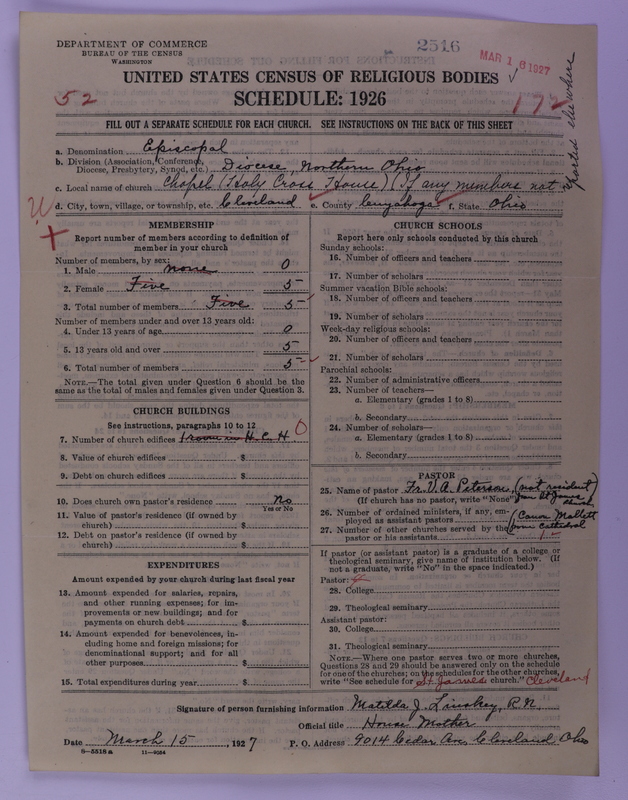 DEPARTMENT OF COMMERCE
BUREAU OF THE CENSUS
WASHINGTON
2516
MAR 16 1927
UNITED STATES CENSUS OF RELIGIOUS BODIES ✓
52
SCHEDULE: 1926
172
FILL OUT A SEPARATE SCHEDULE FOR EACH CHURCH. SEE INSTRUCTIONS ON THE BACK OF THIS SHEET
a. Denomination Episcopal
b. Division (Association, Conference, Diocese, Presbytery, Synod, etc.) Diocese, Northern Ohio
c. Local name of church Chapel (Holy Cross House) (If any members not reported elsewhere
d. City, town, village, or township, etc. Cleveland e. County Cuyahoga f. State Ohio
MEMBERSHIP
Report number of members according to definition of
member in your church
Number of members, by sex:
1. Male none 0
2. Female Five 5
3. Total number of members Five 5
Number of members under and over 13 years old:
4. Under 13 years of age 0
5. 13 years old and over 5
6. Total number of members 5 ✓
NOTE.—The total given under Question 6 should be the
same as the total of males and females given under Question 3.
CHURCH BUILDINGS
See instructions, paragraphs 10 to 12
7. Number of church edifices 1 room in H.C.H 0
8. Value of church edifices $
9. Debt on church edifices $
10. Does church own pastor's residence No
Yes or No
11. Value of pastor's residence (if owned by
church) $
12. Debt on pastor's residence (if owned by
church) $
EXPENDITURES
Amount expended by your church during last fiscal year
13. Amount expended for salaries, repairs,
and other running expenses; for im-
provements or new buildings; and for
payments on church debt $
14. Amount expended for benevolences, in-
cluding home and foreign missions; for
denominational support; and for all
other purposes $
15. Total expenditures during year $
CHURCH SCHOOLS
Report here only schools conducted by this church
Sunday schools:
16. Number of officers and teachers
17. Number of scholars
Summer vacation Bible schools:
18. Number of officers and teachers
19. Number of scholars
Week-day religious schools:
20. Number of officers and teachers
21. Number of scholars
Parochial schools:
22. Number of administrative officers
23. Number of teachers—
a. Elementary (grades 1 to 8)
b. Secondary
24. Number of scholars—
a. Elementary (grades 1 to 8)
b. Secondary
PASTOR
25. Name of pastor Fr. V. A. Peterson, (not resident)
(If church has no pastor, write "None") from St James church
26. Number of ordained ministers, if any, em-
ployed as assistant pastors (Canon Mallett
27. Number of other churches served by the from cathedral
pastor or his assistants 1
If pastor (or assistant pastor) is a graduate of a college or
theological seminary, give name of institution below. (If
not a graduate, write "No" in the space indicated.)
Pastor:
28. College
29. Theological seminary
Assistant pastor:
30. College
31. Theological seminary
NOTE.—Where one pastor serves two or more churches,
Questions 28 and 29 should be answered only on the schedule
for one of the churches; on the schedules for the other churches,
write "See schedule for St. James church." Cleveland
Signature of person furnishing information Matilda J. Linskey, R.N.
Official title House Mother
Date March 15, 1927 P. O. Address 9014 Cedar Ave, Cleveland, Ohio
8—5518 a 11—9554